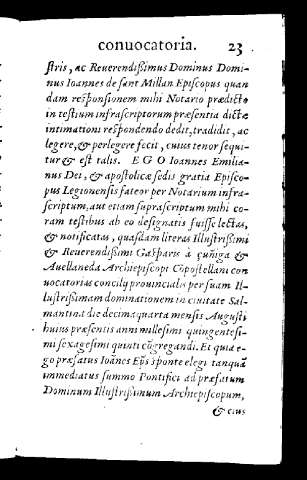 conuocatoria. 23
stris, ac Reuerendißimus Dominus Domi-
nus Ioannes de sant Millan Episcopus quan
dam respōnsionem mihi Notario prædicto
in testium infrascriptorum præsentia dictæ
intimationi respōndendo dedit, tradidit, ac
legere, & perlegere fecit, cuius tenor sequi-
tur & est talis. EGO Ioannes Emilia-
nus Dei, & apostolicæ sedis gratia Episco-
pus Legionensis fateor per Notarium infra-
scriptum, aut etiam suprascriptum mihi co-
ram testibus ab eo designatis fuisse lectas,
& notificatas, quasdam literas Illustrißimi
& Reuerendißimi Gasparis à çuñiga &
Auellaneda Archiepiscopi Cōpostellani con
uocatorias concilij prouincialis per suam Il-
lustrißimam dominationem in ciuitate Sal-
mantina die decimaquarta mensis Augusti
huius præsentis anni millesimi quingentesi-
mi sexagesimi quinti cōgregandi. Et quia e-
go præfatus Ioānes Ep̄s sponte elegi tanquā
immediatus summo Pontifici ad præfatum
Dominum Illustrißimum Archiepiscopum,
& eius